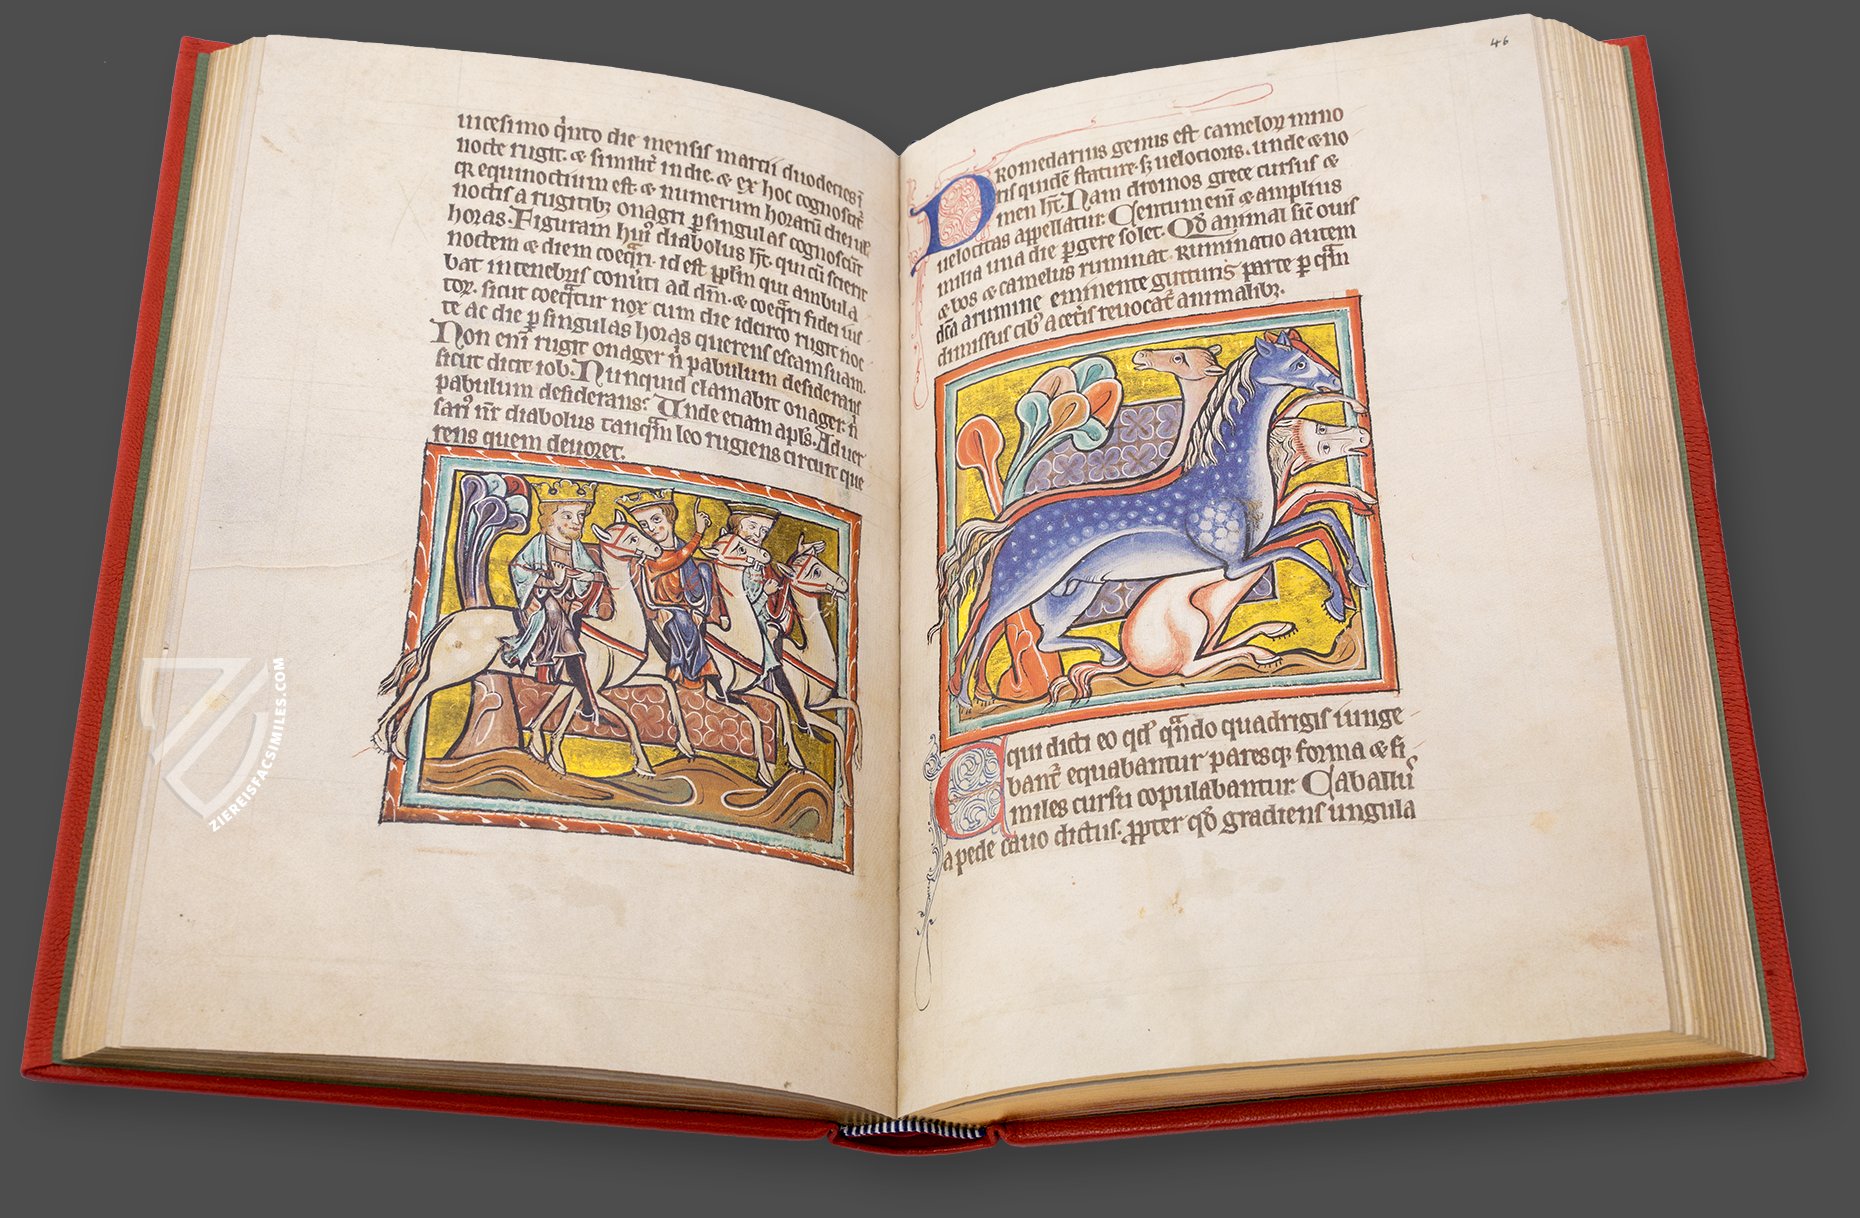 uicesimo q̇nto die mensis martii duodecies ī
nocte rugit. ⁊ similit̄ in die. ⁊ ex hoc cognoscit̄
qꝛ equinoctium est ⁊ numerum horarū diei uł
noctis a rugitibꝫ onagri ꝑ singulas cognoscūt
horas. Figuram huı᷒ diabolus ħt. qui cū scierit
noctem ⁊ diem coeq̄ri. id est ppl̄m qui ambula
bat in tenebris conuti ad dm̄. ⁊ coeq̄ri fidei ius
toꝝ. sicut coeq̄tur nox cum die idcirco rugit noc
te ac die ꝑ singulas horas querens escam suam.
Non eni᷒ rugit onager n̄ pabulum desiderans
sicut dicit iob. Nunquid clamabit onager. n̄
pabulum desiderans? Unde etiam apl̄s. Aduer
sariꝰ nr̄ diabolus tanq̄m leo rugiens circuit que
rens quem deuoret.
46
Dromedarius genus est cameloꝝ mino
ris quidē stature. sꝫ uelocioris. unde ⁊ no
men ħt. Nam dromos grece cursus ⁊
uelocitas appellatur. Centum eni᷒ ⁊ amplius
milia una die ꝑgere solet. Qđ animal sic̄ ouis
⁊ bos ⁊ camelus ruminat. Ruminatio autem
dc̄a a rumine eminente gutturis parte ꝑ q̄m
dimissus cibꝰ a cetis reuocat̄ animalibꝫ.
Equi dicti eo qđ q̄ndo quadrigis iunge
bant̄ equabantur paresqꝫ forma ⁊ si
miles cursu copulabantur. Caballus
a pede cauo dictus. ꝓpter qđ gradiens ungula
ZIEREISFACSIMILES.COM